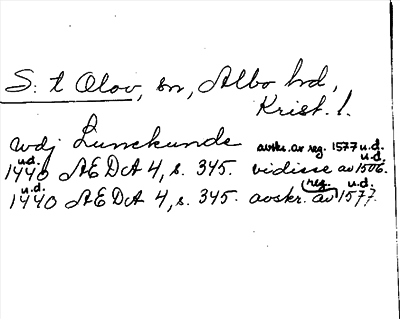 S:t Olov, sn, Albo hd,
Krist. l.
wdj Lunckunde avskr. av reg. 1577 u.d.
u.d. u.d.
1440 AEDA 4, s. 345. vidisse av 1506.
u.d. reg. u.d.
1440 AEDA 4, s. 345. avskr. av 1577.